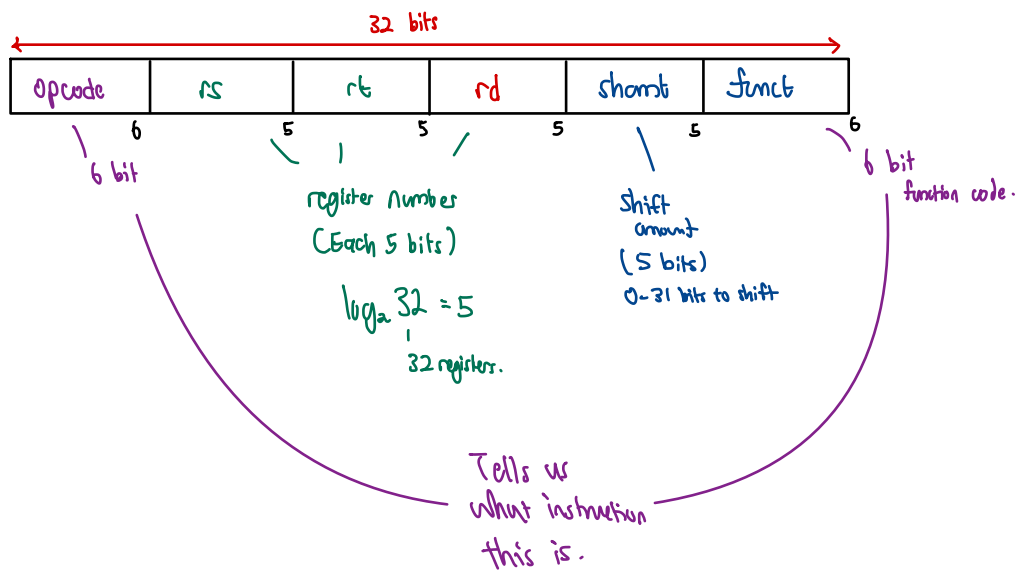 32 bits
opcode rs rt rd shamt funct
6 5 5 5 5 6
6 bit
register number
(Each 5 bits)
log₂ 32 = 5
32 registers.
shift
amount
(5 bits)
0-31 bits to shift
6 bit
function code.
Tells us
what instruction
this is.